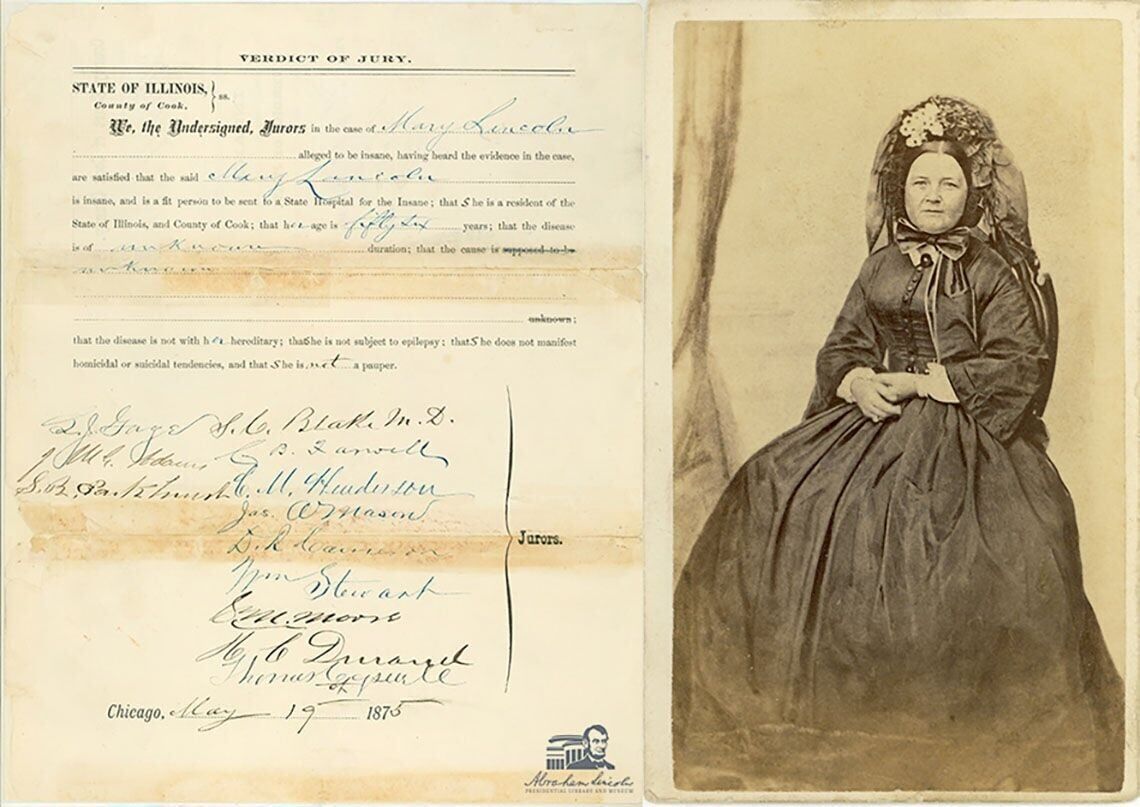 VERDICT OF JURY.
STATE OF ILLINOIS, } ss.
County of Cook,
We, the Undersigned, Jurors in the case of Mary Lincoln
alleged to be insane, having heard the evidence in the case,
are satisfied that the said Mary Lincoln
is insane, and is a fit person to be sent to a State Hospital for the Insane; that She is a resident of the
State of Illinois, and County of Cook; that her age is fifty six years; that the disease
is of unknown duration; that the cause is supposed to be
unknown
unknown;
that the disease is not with her hereditary; that She is not subject to epilepsy; that She does not manifest
homicidal or suicidal tendencies, and that She is not a pauper.
L. J. Gage S. C. Blake M. D.
J McG. Adams C B. Farwell
S. B. Parkhurst C. M. Henderson
Jas. A Mason
D. R. Cameron
Wm Stewart
E. M. Moore
H. C Durand
Thomas Cogswell
Jurors.
Chicago, May 19 1875
Abraham Lincoln
PRESIDENTIAL LIBRARY AND MUSEUM